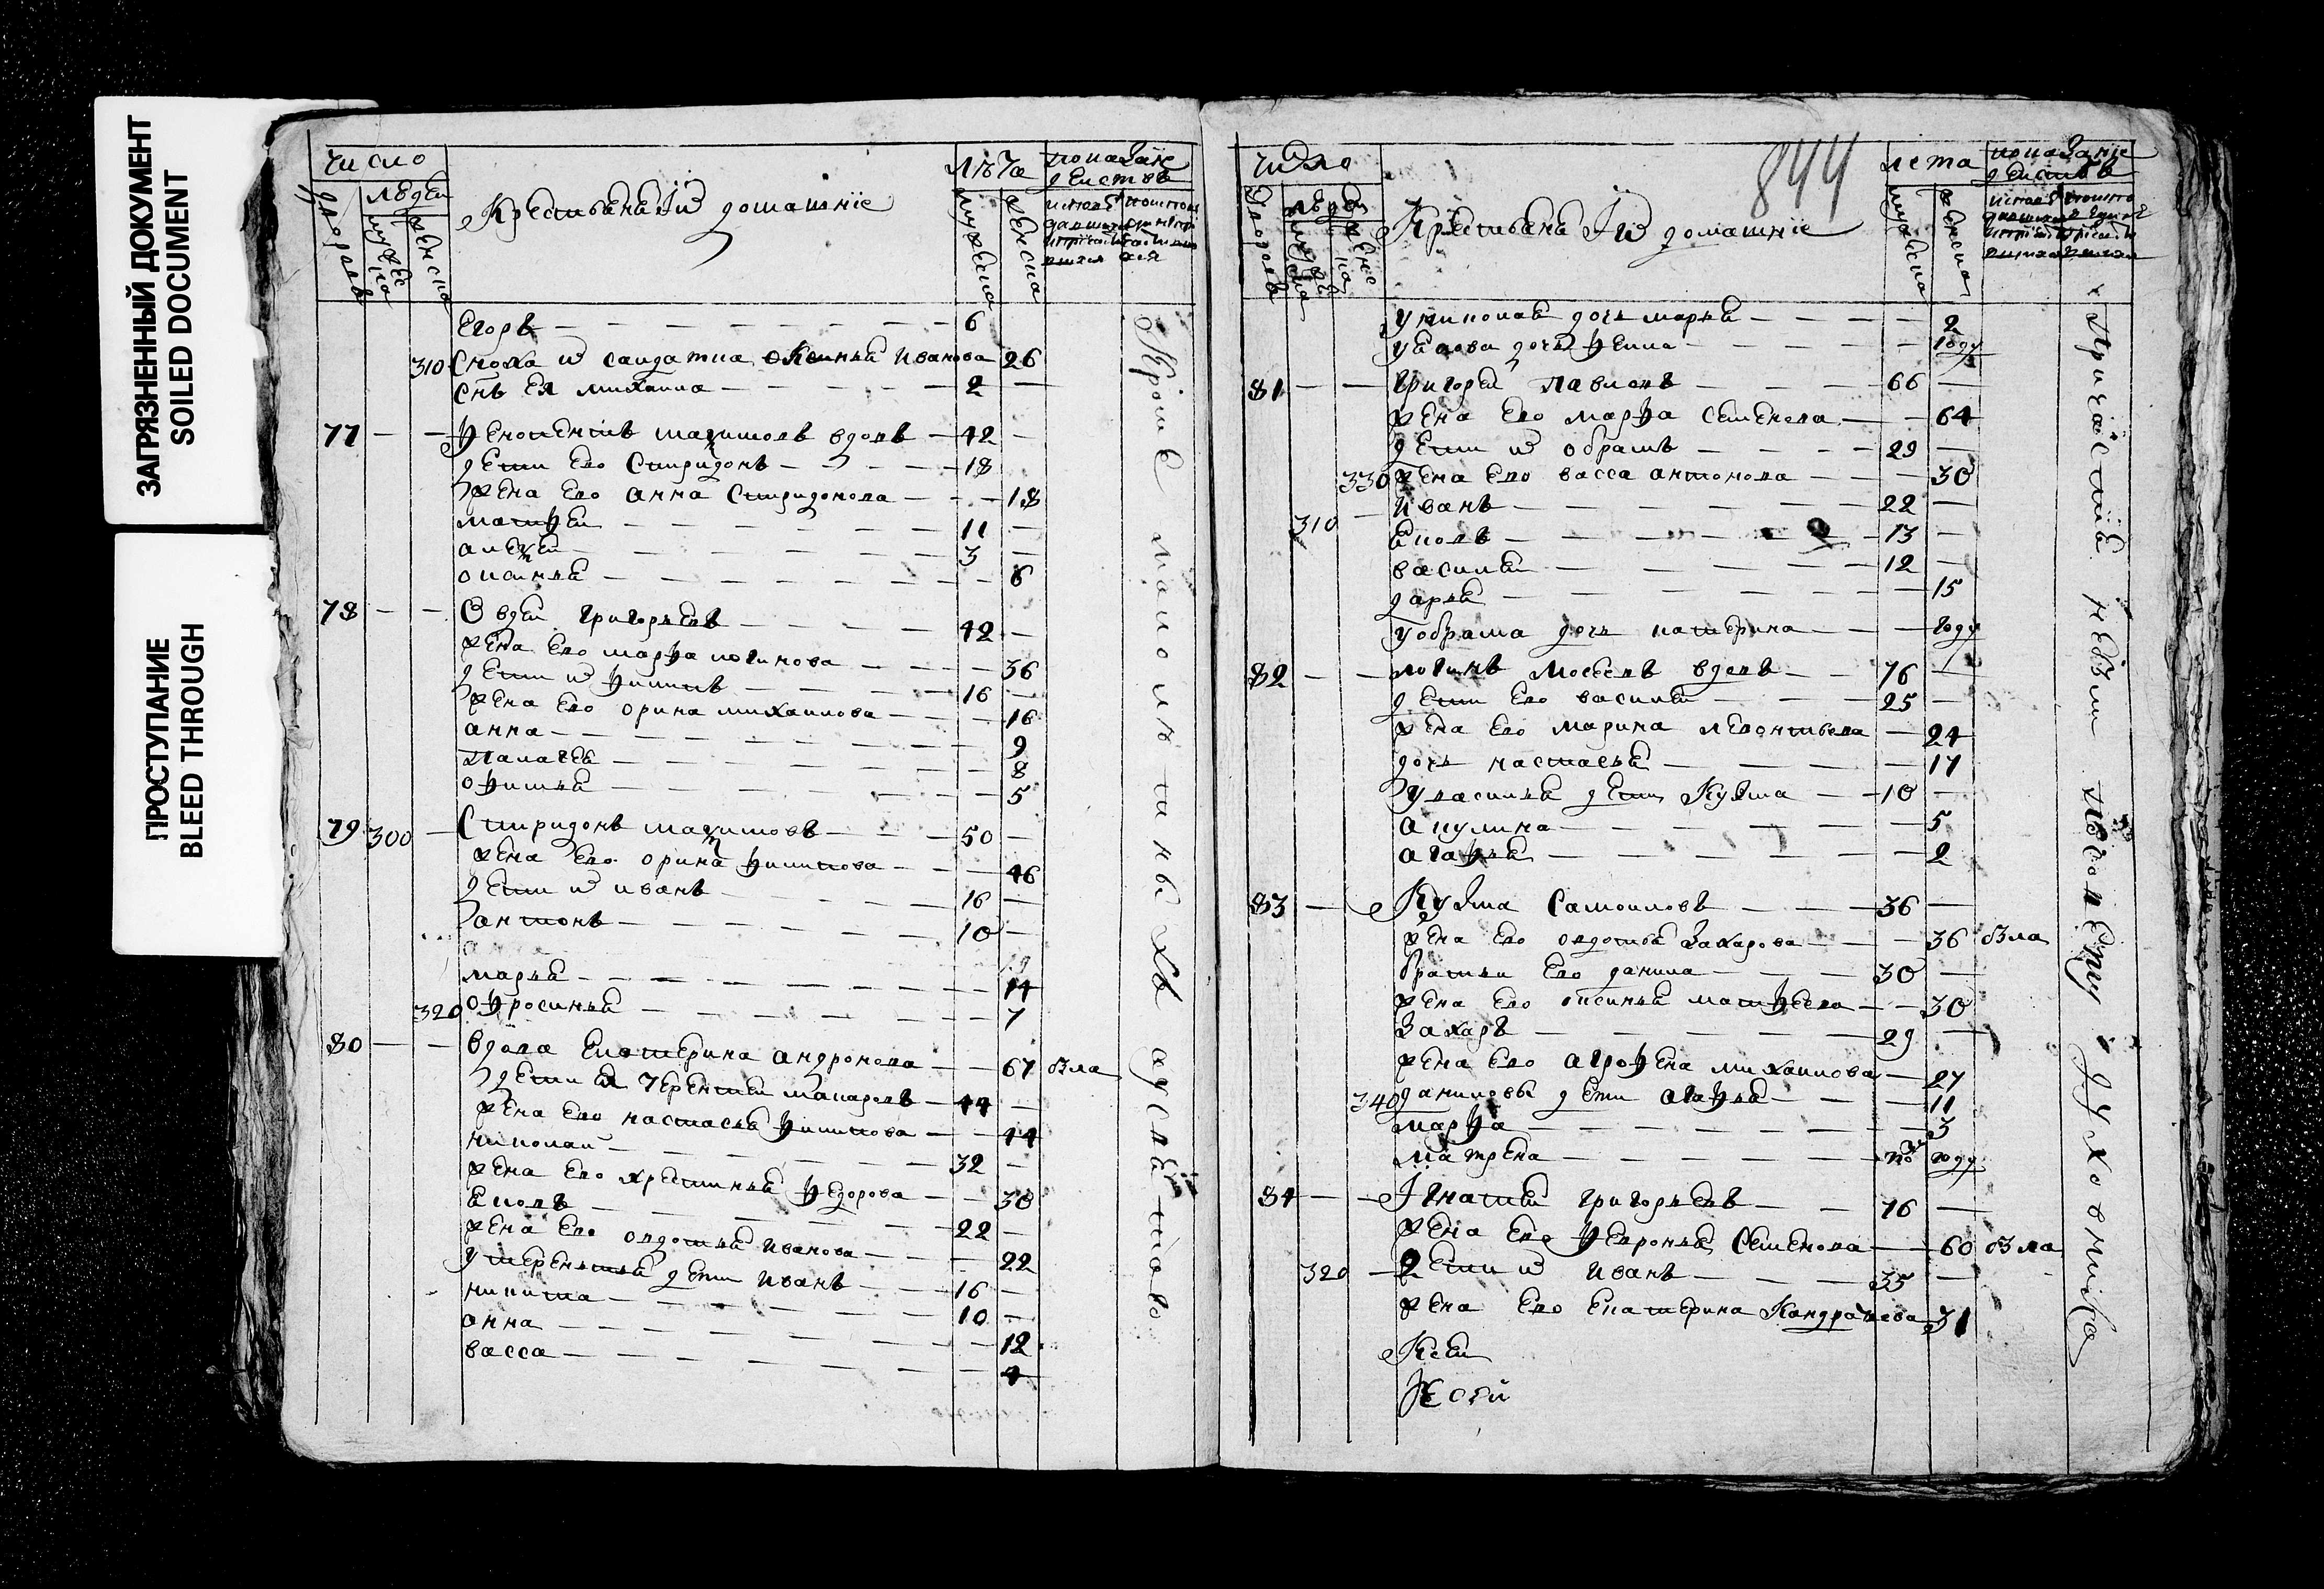 ЗАГРЯЗНЕННЫЙ ДОКУМЕНТ
SOILED DOCUMENT
ПРОСТУПАНИЕ
BLEED THROUGH
число
людеи
дворовъ
мужеска
женска
Крестьяня и домашние
лѣта
мужеска
женска
показание действъ
Егоръ 6
310 Сноха и салдатка Оксинья Иванова 26
снъ ея михаила 2
77 Фенопентъ Мазимовъ вдовъ 42
дети ево Спиридонъ 18
жена ево анна Спиридонова 18
матфеи 11
алеѯеи 3
оксинья 6
78 Овдеи григорьевъ 42
жена ево марфа логинова 36
дети и Филипъ 16
жена ево орина михаилова 16
анна 9
палагея 8
офимья 5
79 300 Спиридонъ маѯимовъ 50
жена ево орина Филипова 46
дети и иванъ 16
антонъ 10
марья 14
320 офросинья 7
80 вдова Екатерина андронова 67 была
дети ея Терентеи макаровъ 44
жена ево настасья Филипова 44
николаи 32
жена ево хрестинья Федорова 30
Яковъ 22
жена ево овдотья иванова 22
у терентья дети иванъ 16
никита 10
анна 12
васса 4
Кроме малолѣтныхъ
844
число
дворовъ
людеи
мужеска
женска
Крестьяня и домашние
лета
мужеска
женска
показание действъ
у николая дочь марья 2
у Якова дочь Фекла году
81 григореи павловъ 66
жена ево марфа Семенова 64
дети и обрамъ 29
330 жена ево васса антонова 30
иванъ 22
310 Яковъ 13
василеи 12
дарья 15
у обрама дочь катерина году
82 логинъ Мосеевъ вдовъ 76
дети ево василеи 25
жена ево марина левонтьева 24
дочь настасья 17
у василья дети Кузма 10
акулина 5
агафья 2
83 Кузма Самоиловъ 36
жена ево овдотья Захарова 36 была
братья ево данила 30
жена ево оксинья матфеева 30
Захаръ 29
жена ево агрофена михаилова 27
340 даниловы дети агафья 11
марфа 3
матрена году
84 Игнатеи григорьевъ 76
жена ево Февронья Семенова 60 была
320 дети и иванъ 35
жена ево Екатерина Кандратева 31